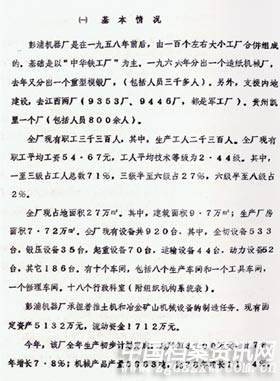 ㈠ 基本情况
彭浦机器厂是在一九五八年前后，由一百个左右大小工厂合併组
成的。基础是以“中华铁工厂”为主。一九六六年分出一个造纸机械厂，
去年又分出一个重型模锻厂，（包括人员三千多人）。另外，支援内地
建设，去江西两厂（9353厂、9446厂，都是军工厂）。贵州凯
里一个厂（包括人员800余人）。
全厂现有职工三千三百人，其中，生产工人二千三百人。全厂现有
职工平均工资54·67元，工人平均技术等级为2·44级。其中，
一至三级占工人总数71％，三级半至六级占27％，六级半至八级占
2％。
全厂现占地面积27万㎡。其中，建筑面积9·7万㎡；生产厂房
面积7·72万㎡。全厂现有设备共920台。其中，金切设备533
台，锻压设备35台，起重设备70台，运输设备44台，动力设备52
台，其它186台。有十个车间，包括八个生产车间和一个工具车间，
一个修理车间。十八个行政科室（附组织机构系统表）
彭浦机器厂承担着推土机和冶金矿山机械设备的制造任务。现有固
定资产5132万元，流动资金1712万元。
今年，该厂全年生产初步计划
年增长7·8％；机械产品产量
中国档案资讯网
www.zgdazxw.com